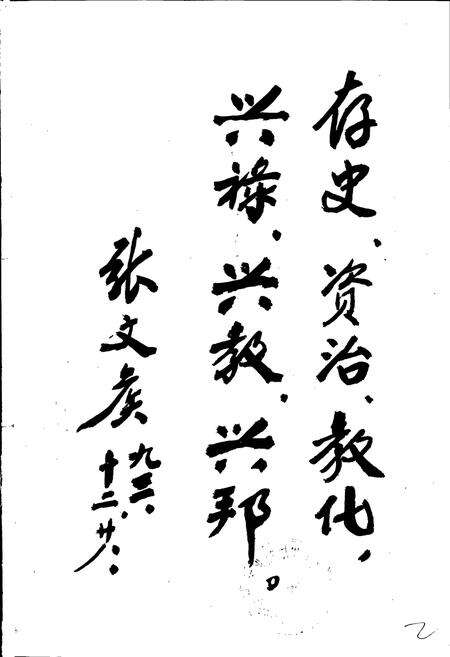 存史、资治、教化，
兴禄、兴教、兴邦。
张文
九三、
十二、廿八、
2